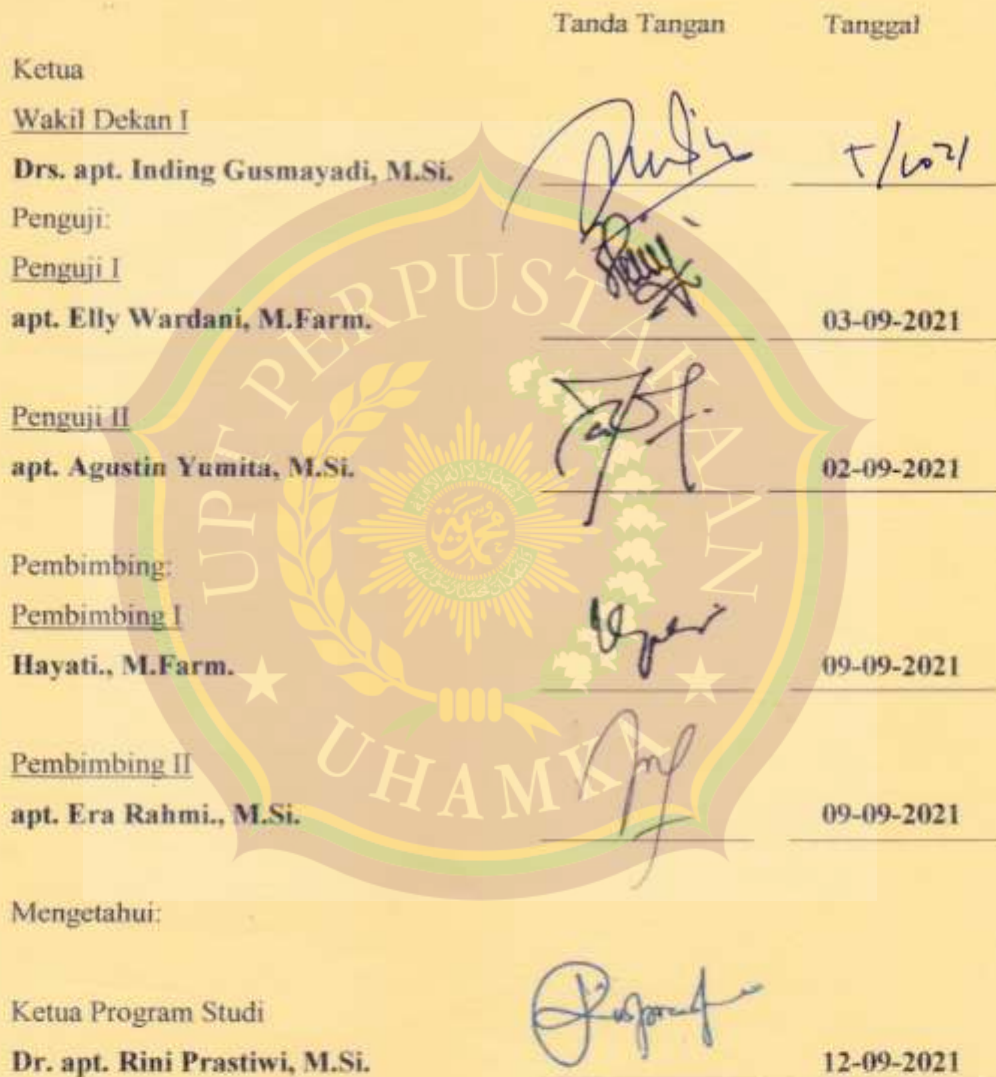 Tanda Tangan Tanggal
Ketua
Wakil Dekan I
Drs. apt. Inding Gusmayadi, M.Si.
Penguji:
Penguji I
apt. Elly Wardani, M.Farm. 03-09-2021
Penguji II
apt. Agustin Yumita, M.Si. 02-09-2021
Pembimbing:
Pembimbing I
Hayati., M.Farm. 09-09-2021
Pembimbing II
apt. Era Rahmi., M.Si. 09-09-2021
Mengetahui:
Ketua Program Studi
Dr. apt. Rini Prastiwi, M.Si. 12-09-2021
UPT PERPUSTAKAAN
UHAMKA